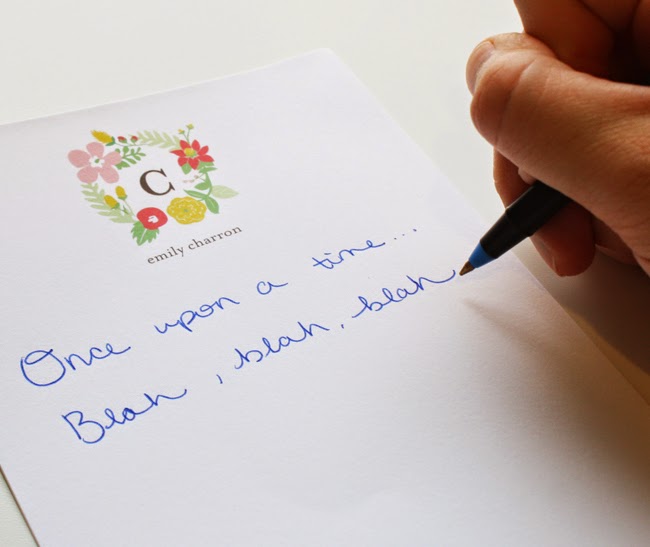 C
emily charron
Once upon a time...
Blah, blah, blah